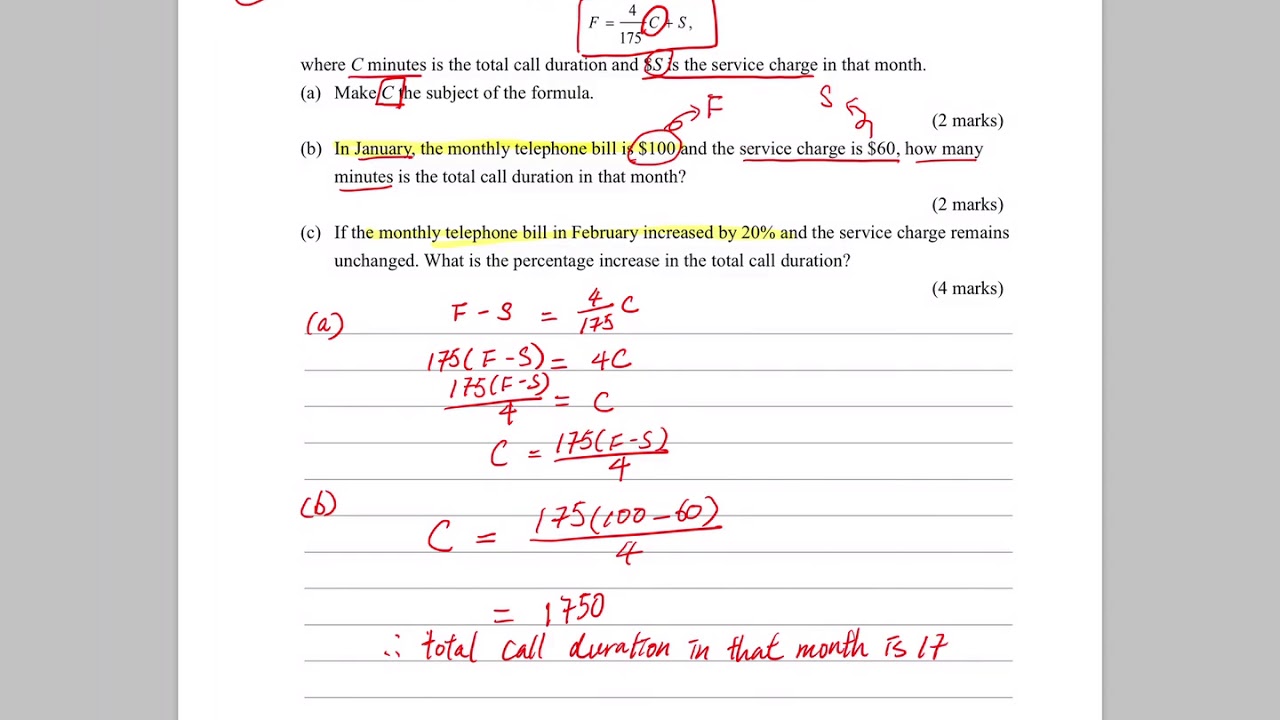 F = 4/175 C + S,
where C minutes is the total call duration and $S is the service charge in that month.
(a) Make C the subject of the formula.
F
S
(2 marks)
(b) In January, the monthly telephone bill is $100 and the service charge is $60, how many
minutes is the total call duration in that month?
(2 marks)
(c) If the monthly telephone bill in February increased by 20% and the service charge remains
unchanged. What is the percentage increase in the total call duration?
(4 marks)
(a) F - S = 4/175 C
175(F - S) = 4C
175(F - S)/4 = C
C = 175(F - S)/4
(b) C = 175(100 - 60)/4
= 1750
∴ total call duration in that month is 17